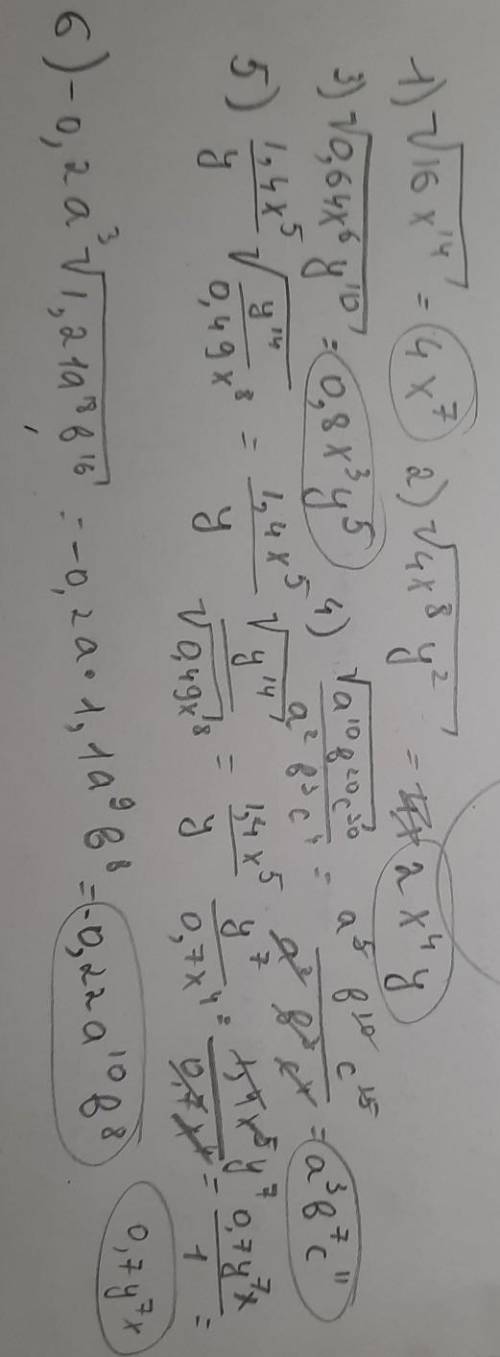 1) √16x¹⁴ = 4x⁷ 2) √4x⁸y² = 2x⁴y
3) √0,64x⁶y¹⁰ = 0,8x³y⁵ 4) √a¹⁰b²⁰c³⁰ / a²b³c⁴ = a⁵b¹⁰c¹⁵ / a²b³c⁴ = a³b⁷c¹¹
5) 1,4x⁵/y √y¹⁴/0,49x⁸ = 1,4x⁵/y √y¹⁴/√0,49x⁸ = 1,4x⁵/y y⁷/0,7x⁴ = 1,4x⁵y⁷/0,7x⁴ = 0,7y⁷x/1 =
0,7y⁷x
6) -0,2a³√1,21a¹⁸b¹⁶ = -0,2a · 1,1a⁹b⁸ = -0,22a¹⁰b⁸